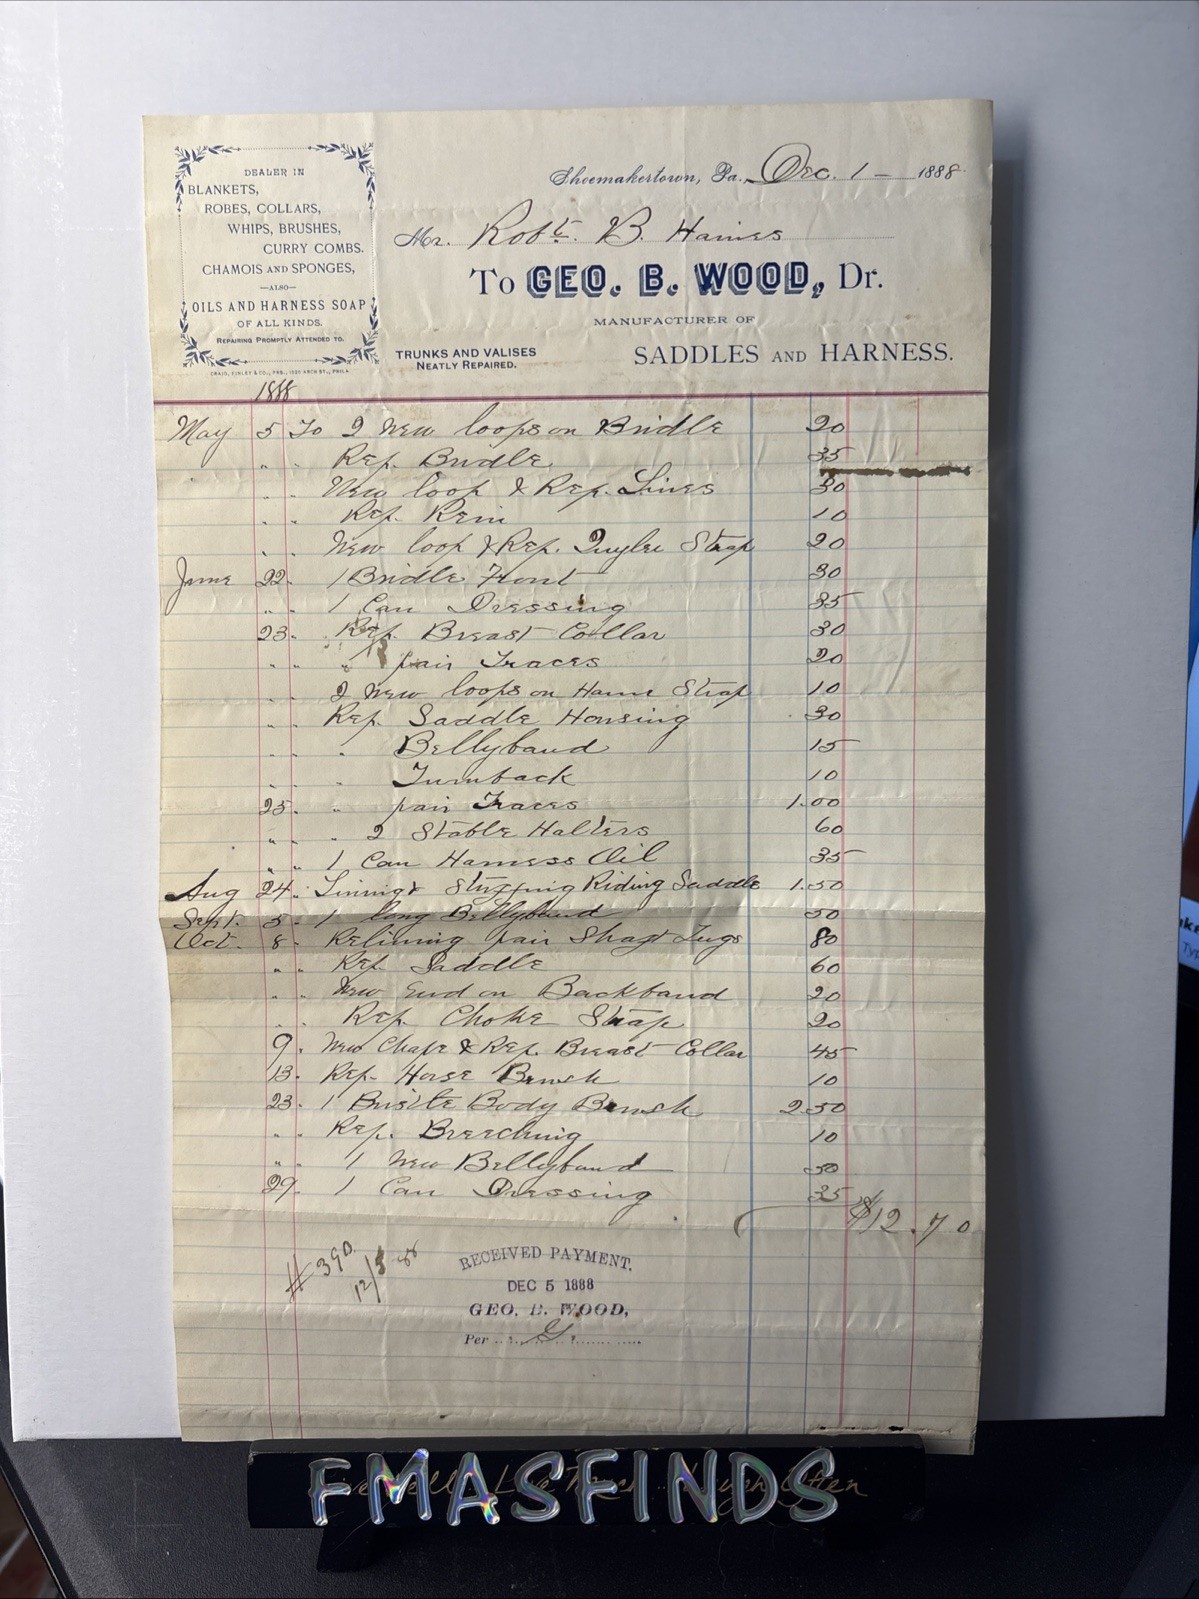 DEALER IN
BLANKETS,
ROBES, COLLARS,
WHIPS, BRUSHES,
CURRY COMBS.
CHAMOIS AND SPONGES,
—ALSO—
OILS AND HARNESS SOAP
OF ALL KINDS.
REPAIRING PROMPTLY ATTENDED TO.
CRAIG, FINLEY & CO., PRS., 1020 ARCH ST., PHILA.
Shoemakertown, Pa. Dec. 1 — 1888
Mr. Robt. B. Haines
To GEO. B. WOOD, Dr.
MANUFACTURER OF
SADDLES AND HARNESS.
TRUNKS AND VALISES
NEATLY REPAIRED.
1888
May 5 To 2 New loops on Bridle 20
" " Rep. Bridle 35
" " New loop & Rep. Lines 30
" " Rep. Rein 10
" " New loop & Rep. Strap 20
June 22 1 Bridle Front 30
" " 1 Can Dressing 35
23 " Rep. Breast Collar 30
" " " pair Traces 20
" " 2 New loops on Hame Strap 10
" " Rep. Saddle Housing 30
" " " Bellyband 15
" " " Turnback 10
25 " pair Traces 1.00
" " " 2 Stable Halters 60
" " 1 Can Harness Oil 35
Aug 24 Lining & Stuffing Riding Saddle 1.50
Sept. 5 1 long Bellyband 50
Oct. 8 Relining pair Shaft Tugs 80
" " Rep. Saddle 60
" " New End on Backband 20
" " Rep. Choke Strap 20
9 New Chape & Rep. Breast Collar 45
13 Rep. Horse Brush 10
23 1 Bristle Body Brush 2.50
" " Rep. Breeching 10
" " 1 New Bellyband 50
29 1 Can Dressing 35
$12.70
# 390
12/5 88
RECEIVED PAYMENT.
DEC 5 1888
GEO. B. WOOD,
Per G
FMASFINDS